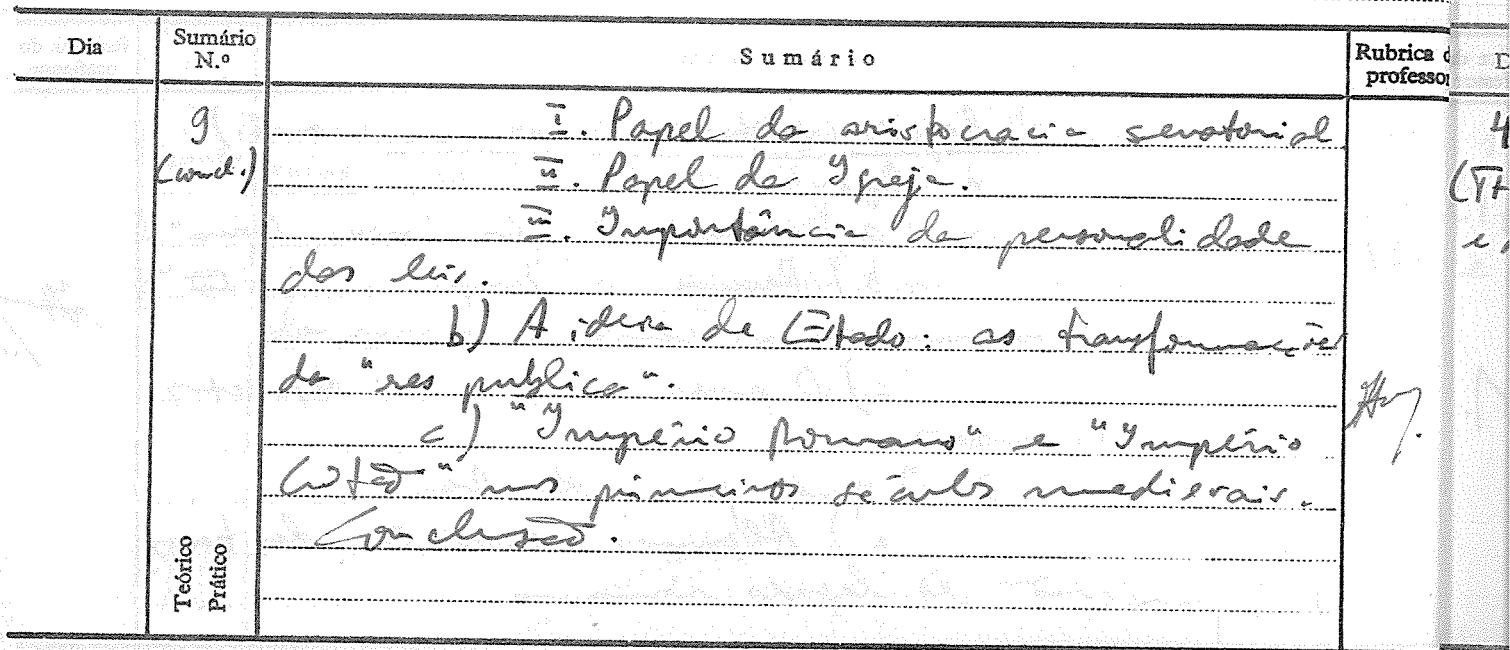 Dia
Sumário
N.º
Sumário
Rubrica
professor
9
(concl.)
I. Papel da aristocracia senatorial
II. Papel da Igreja.
III. Importância da personalidade
das leis.
b) A ideia de Estado: as transformações
da "res publica".
c) "Império Romano" e "Império
Cristão" nos primeiros séculos medievais.
Conclusão.
Teórico
Prático